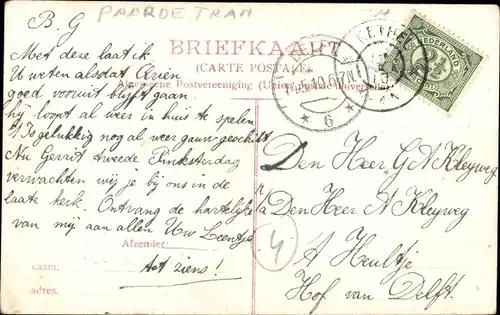 PAERDE TRAM
B. G
BRIEFKAART
(CARTE POSTALE)
Algemeene Postvereeniging (Union postale universelle)
NEDERLAND
KETH
6
Met deze laat ik
U weten alsdat Ariën
goed vooruit blyft gaan.
hij loopt al weer in huis te spelen
't Is gelukkig nog al weer gauw geschikt
Nu Gerrit tweede Pinksterdag
verwachten wij je bij ons in de
laate kerk. Ontvang de hartelijke
van mij aan allen Uw Leentje
Afzender:
tot ziens!
naam.
adres.
Den Heer G N Kleyweg
p/a Den Heer A Kleyweg
4
A Heultje
Hof van Delft.